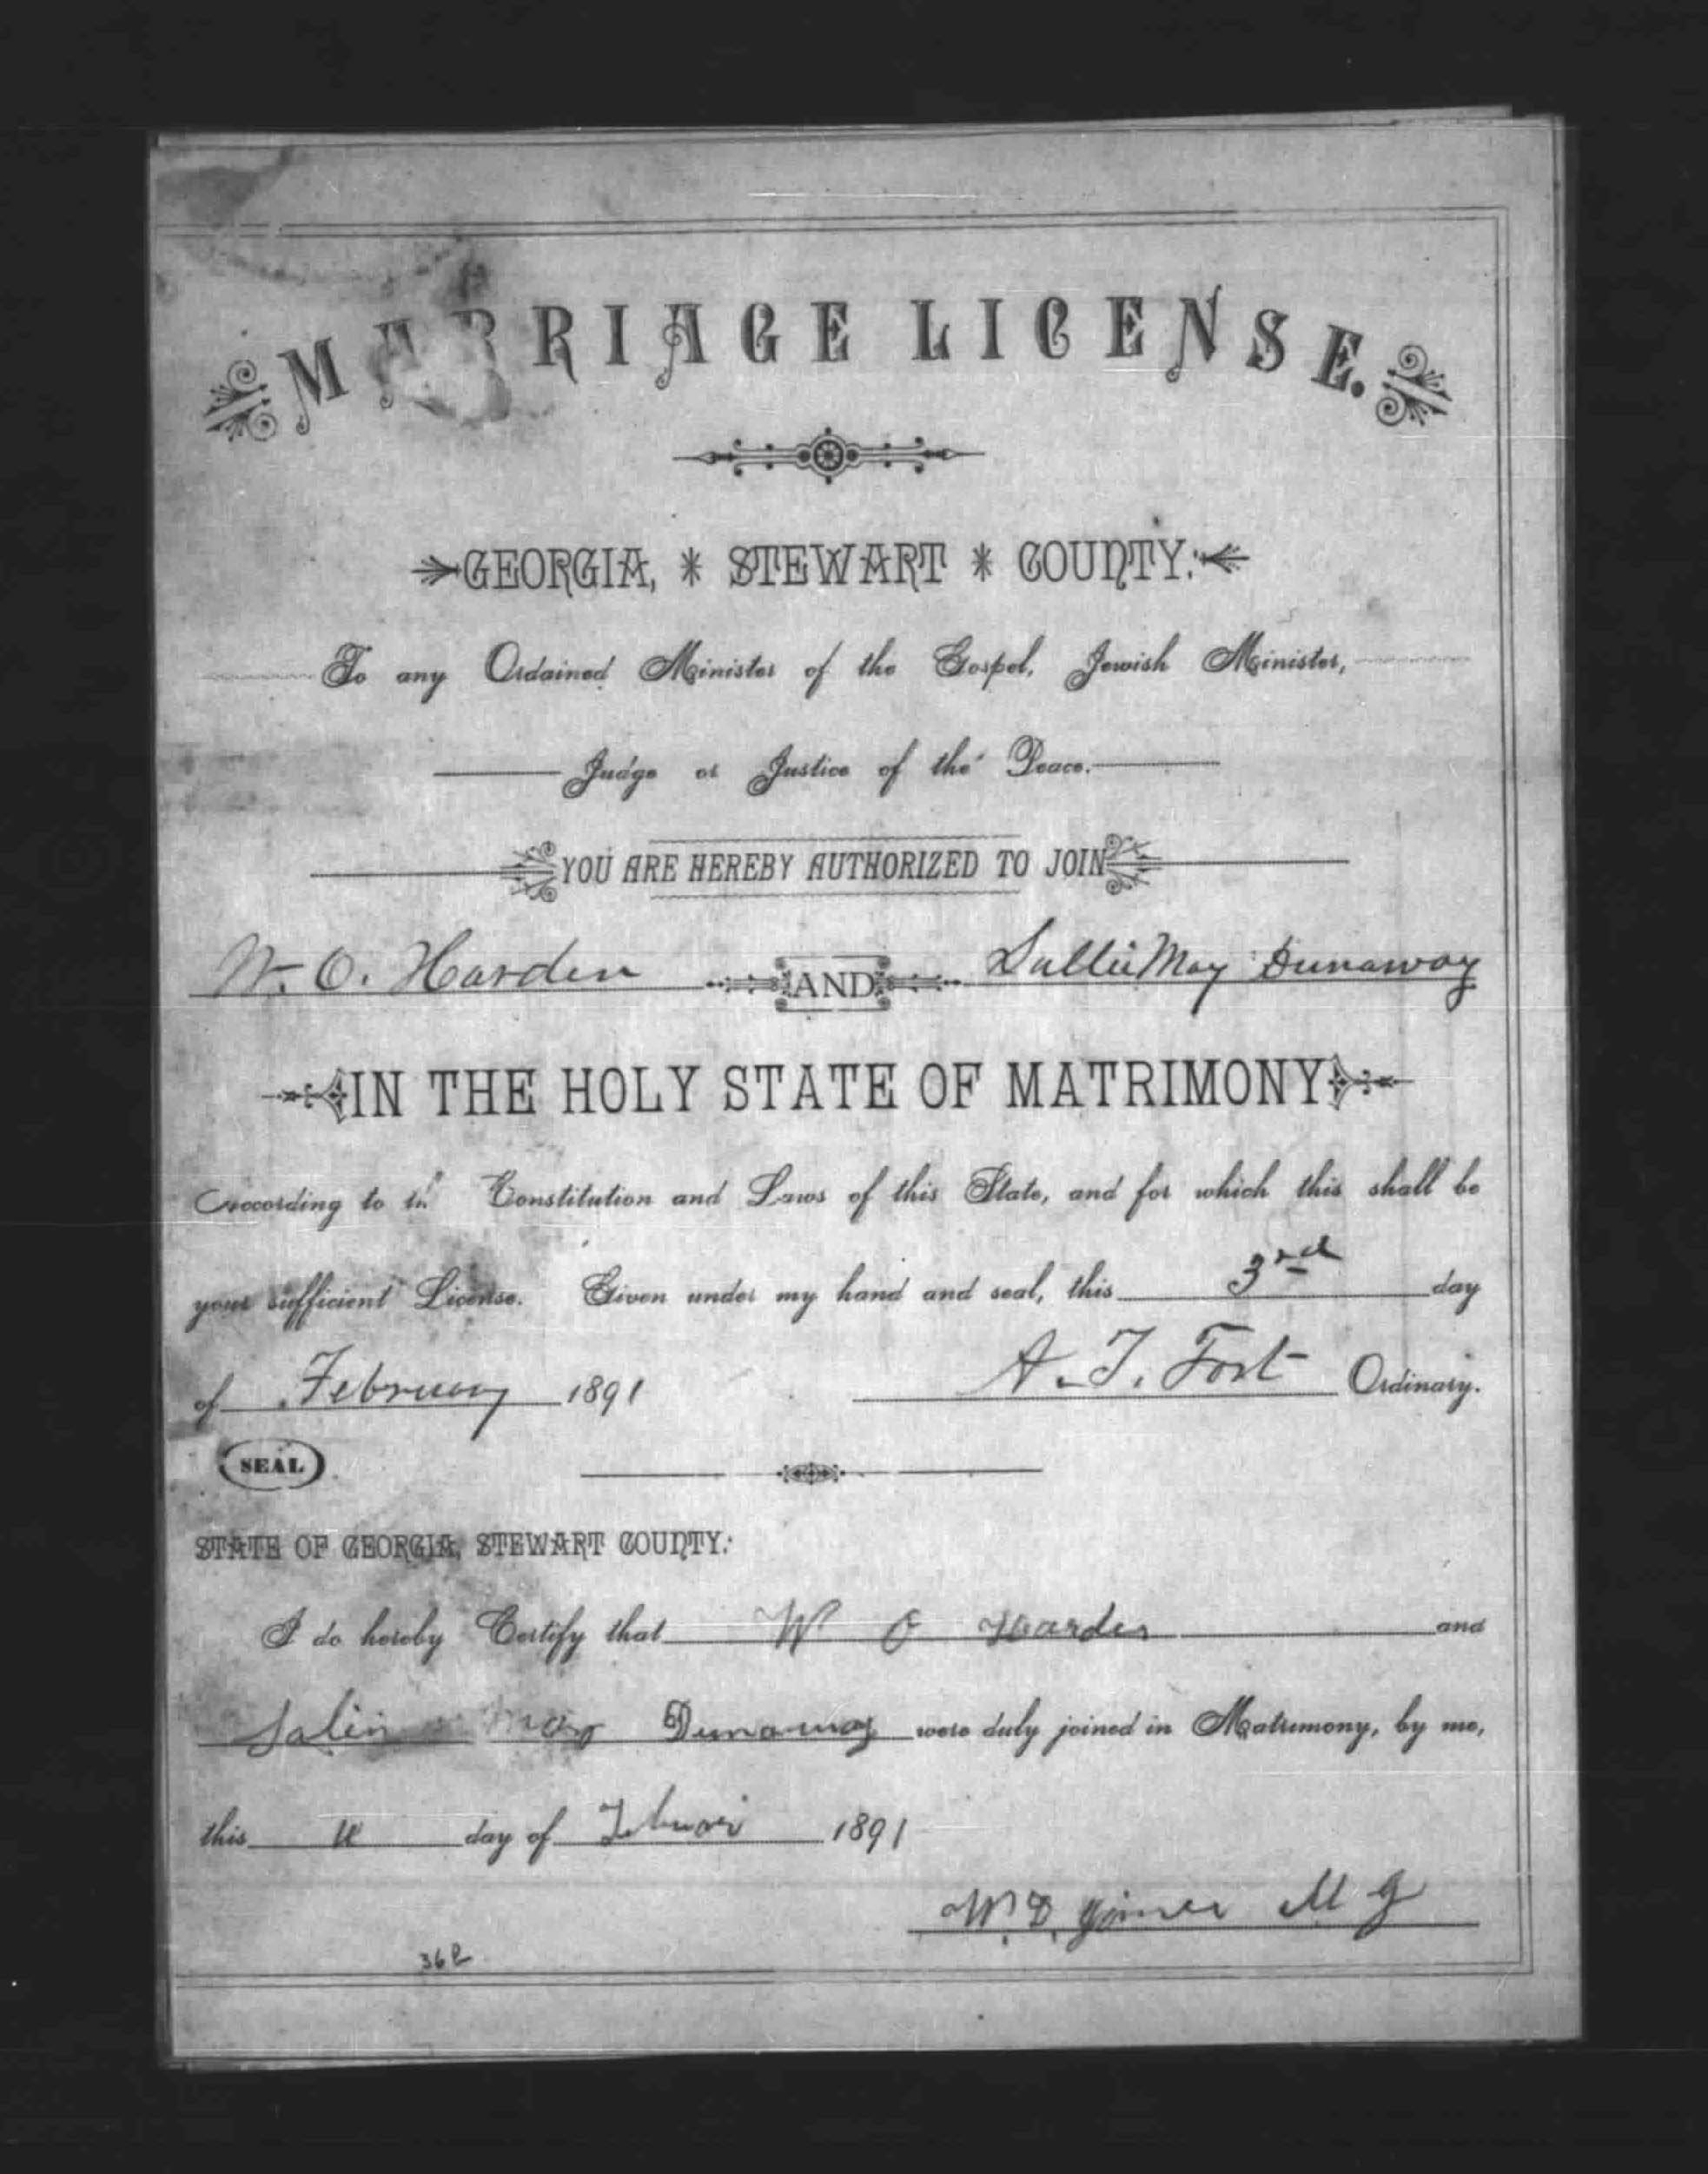 MARRIAGE LICENSE.
GEORGIA, * STEWART * COUNTY:
To any Ordained Minister of the Gospel, Jewish Minister,
Judge or Justice of the Peace.
YOU ARE HEREBY AUTHORIZED TO JOIN
W. O. Harden AND Sallie May Dunaway
IN THE HOLY STATE OF MATRIMONY
According to the Constitution and Laws of this State, and for which this shall be
your sufficient License. Given under my hand and seal, this 3rd day
of February 1891 A. T. Fort Ordinary.
SEAL
STATE OF GEORGIA, STEWART COUNTY:
I do hereby Certify that W O Harden and
Salin May Dunaway were duly joined in Matrimony, by me,
this day of 1891
W. D. M G
362